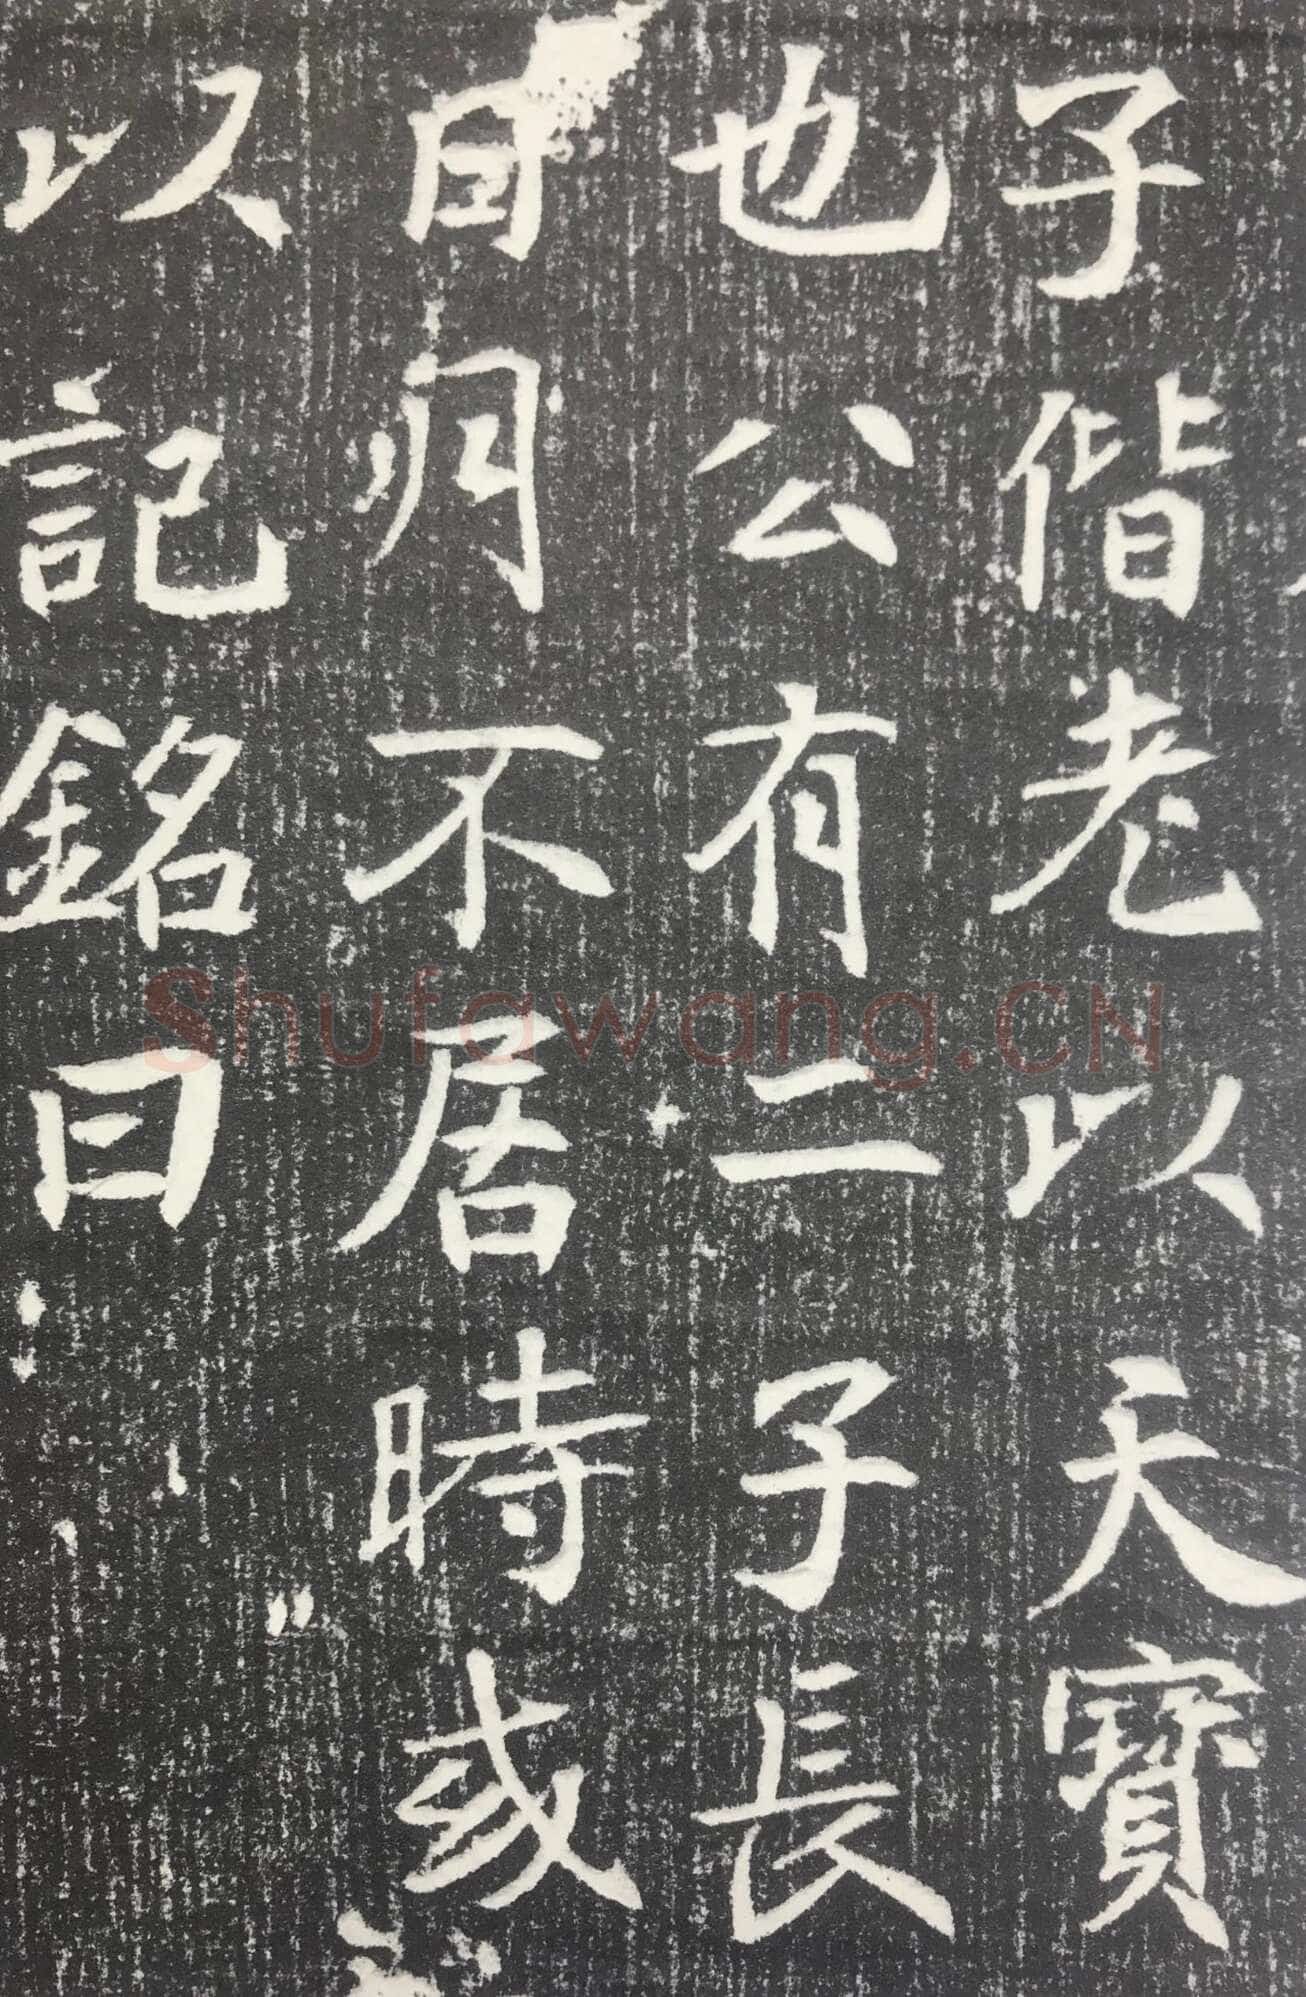 子偕老以天寶
也公有二子長
日月不居時或
以記銘曰
Shufawang.CN